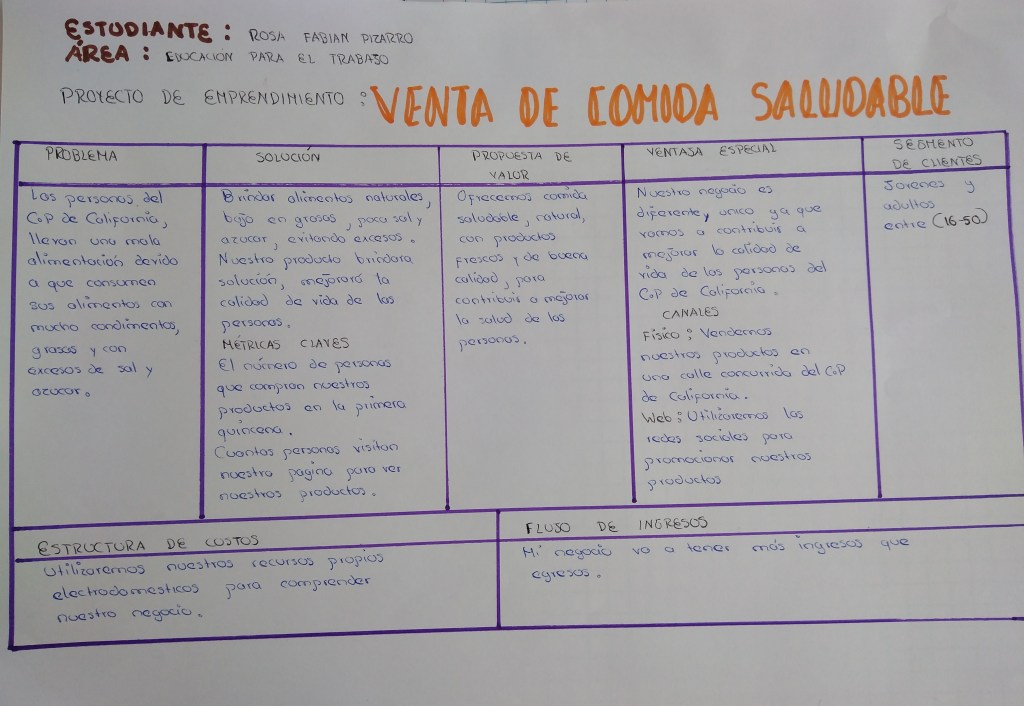 ESTUDIANTE : ROSA FABIAN PIZARRO
ÁREA : EDUCACIÓN PARA EL TRABAJO
PROYECTO DE EMPRENDIMIENTO : VENTA DE COMIDA SALUDABLE
PROBLEMA
Las personas del
C.P de California,
llevan una mala
alimentación devido
a que consumen
sus alimentos con
mucho condimentos,
grasas y con
excesos de sal y
azucar.
SOLUCIÓN
Brindar alimentos naturales,
bajo en grasas, poca sal y
azucar, evitando excesos.
Nuestro producto brindara
solución, mejorará la
calidad de vida de las
personas.
MÉTRICAS CLAVES
El número de personas
que compran nuestros
productos en la primera
quincena.
Cuantas personas visitan
nuestra pagina para ver
nuestros productos.
PROPUESTA DE
VALOR
Ofrecemos comida
saludable, natural,
con productos
frescos y de buena
calidad, para
contribuir a mejorar
la salud de las
personas.
VENTAJA ESPECIAL
Nuestro negocio es
diferente y unico ya que
vamos a contribuir a
mejorar la calidad de
vida de las personas del
C.P de California.
CANALES
Físico : Vendemos
nuestros productos en
una calle concurrida del C.P
de California.
Web : Utilizaremos las
redes sociales para
promocionar nuestros
productos
SEGMENTO
DE CLIENTES
Jovenes y
adultos
entre (16-50)
ESTRUCTURA DE COSTOS
Utilizaremos nuestros recursos propios
electrodomesticos para comprender
nuestro negocio.
FLUJO DE INGRESOS
Mi negocio va a tener más ingresos que
egresos.